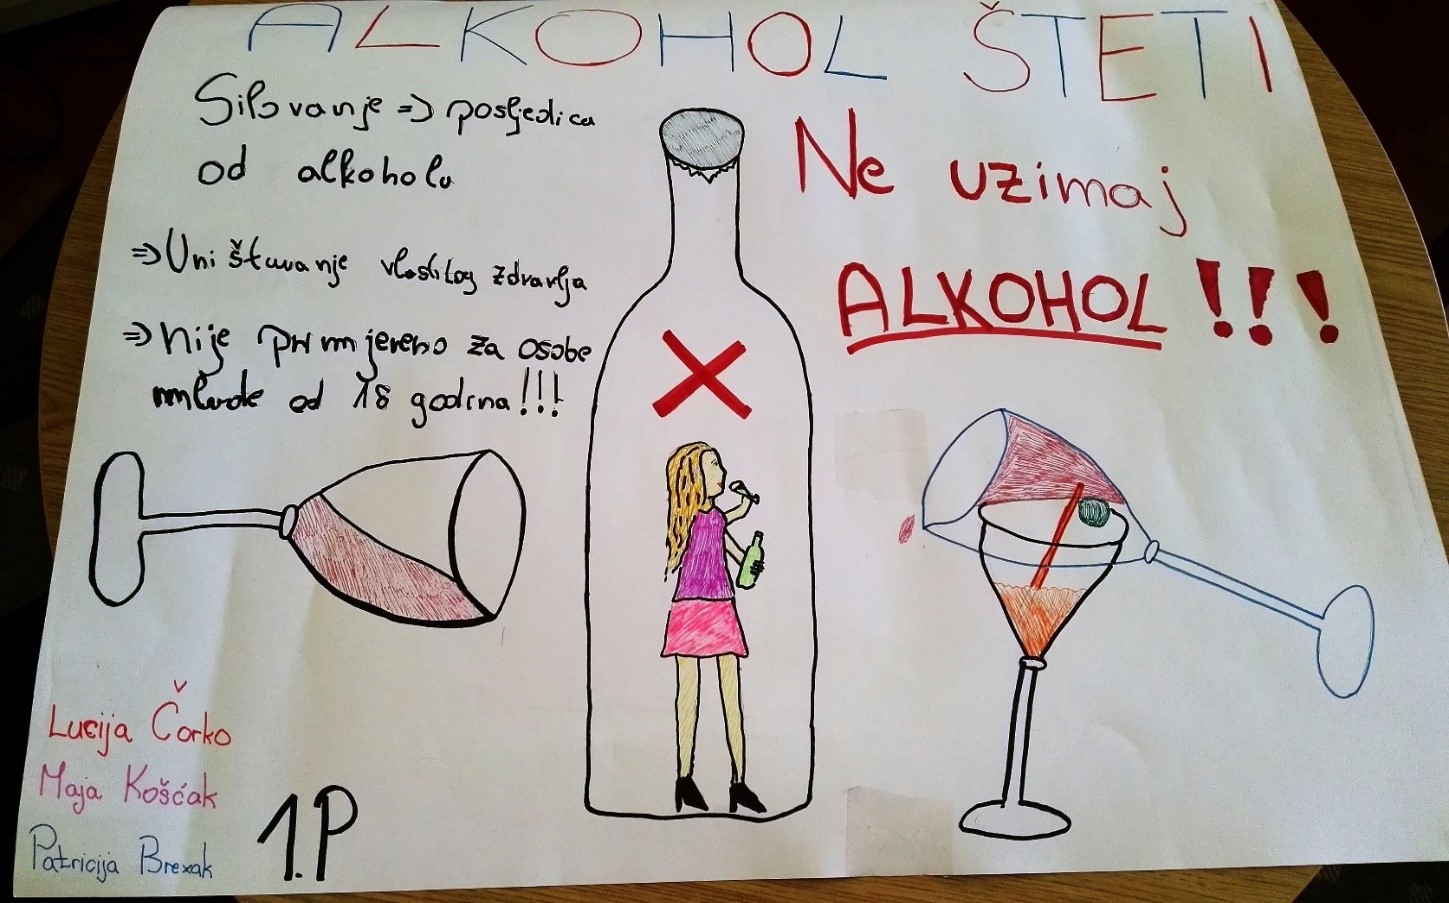 ALKOHOL ŠTETI
Silovanje => posljedica
od alkohola
=> Uništavanje vlastitog zdravlja
=> nije primjereno za osobe
mlađe od 18 godina!!!
Ne uzimaj
ALKOHOL!!!
Lucija Čorko
Maja Košćak
Patricija Brezak
1.P